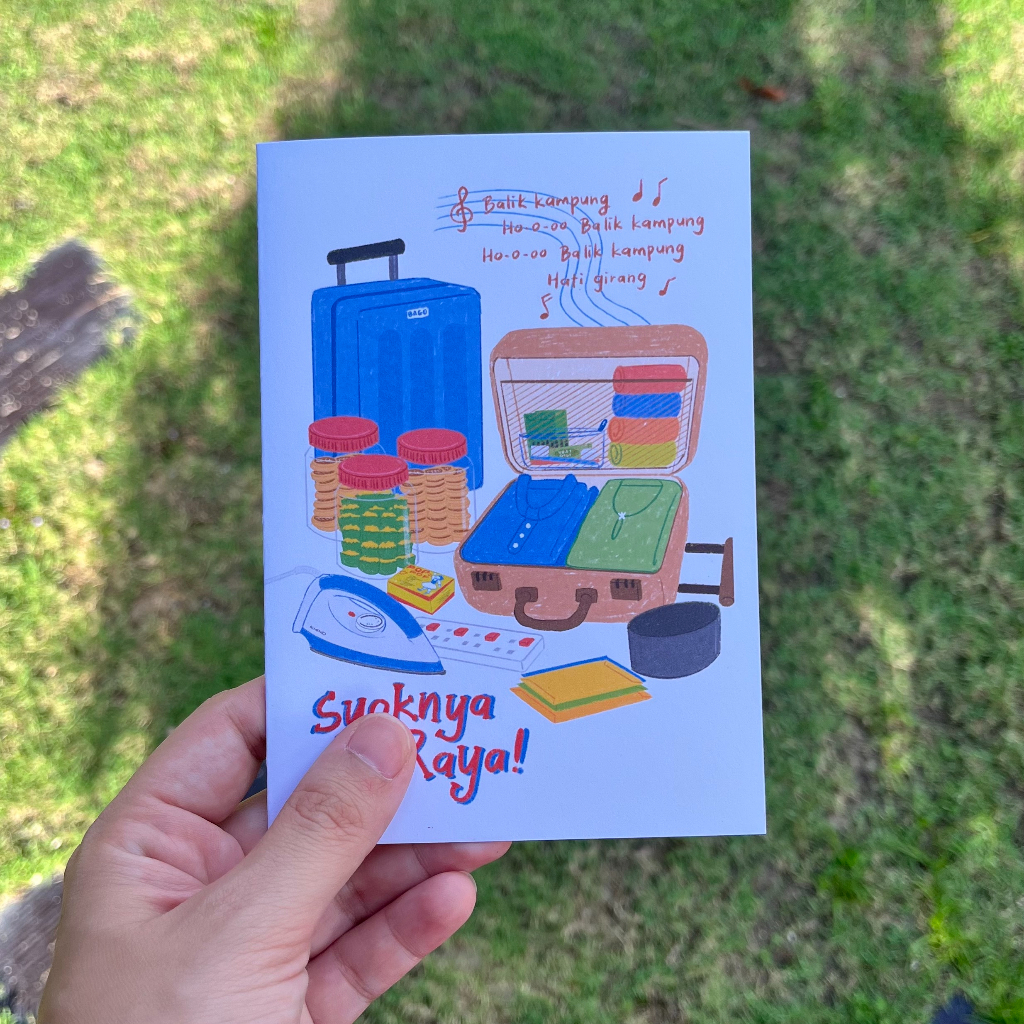 Balik kampung
Ho-o-oo Balik kampung
Ho-o-oo Balik kampung
Hati girang
BAGO
Raya!